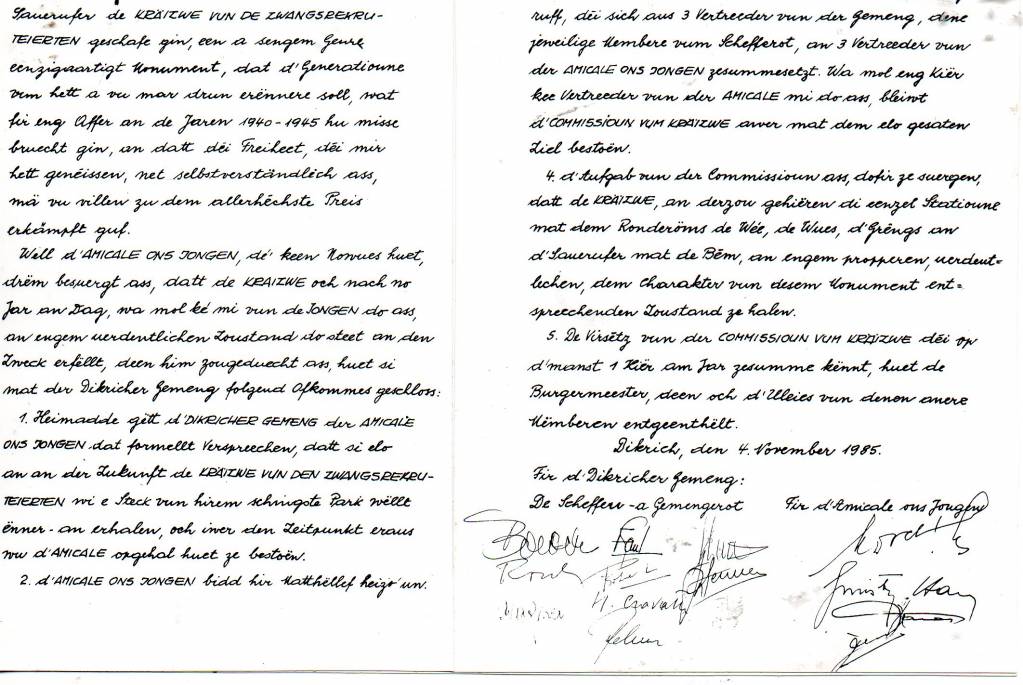 Sauerufer de KRÄIZWE VUN DE ZWANGSREKRU-
TÉIERTEN geschafe gin, een a sengem Geure
eenzigaartigt Monument, dat d'Generatioune
vum hett a vu mar drun erënnere soll, wat
fir eng Affer an de Jaren 1940-1945 hu misse
bruecht gin, an datt déi Freiheet, déi mir
hett genéissen, net selbstverständlech ass,
mä vu villen zu dem allerhéchste Preis
erkämpft guf.
Well d'AMICALE ONS JONGEN, dé' keen Nowues huet,
drëm besuergt ass, datt de KRÄIZWE och nach no
Jar an Dag, wa mol ké mi vun de JONGEN do ass,
an engem uerdentlichen Zoustand do steet an den
Zweck erfëllt, deen him zougeduecht ass, huet si
mat der Dikricher Gemeng folgend Ofkommes geschloss:
1. Heimadde gëtt d'DIKRICHER GEMENG der AMICALE
ONS JONGEN dat formellt Verspreechen, datt si elo
an an der Zukunft de KRÄIZWE VUN DEN ZWANGSREKRU-
TÉIERTEN wi e Steck vun hirem schingste Park wëllt
ënner-an erhalen, och iwer den Zeitpunkt eraus
wu d'AMICALE opgehal huet ze bestoën.
2. d'AMICALE ONS JONGEN bidd hir Matthëllef heizo' un.
ruff, déi sich aus 3 Vertreeder vun der Gemeng, dene
jeweilige Membere vum Schefferot, an 3 Vertreeder vun
der AMICALE ONS JONGEN zesummesetzt. Wa mol eng Kiér
kee Vertreeder vun der AMICALE mi do ass, bleiwt
d'COMMISSIOUN VUM KRÄIZWE awer mat dem elo gesaten
Ziel bestoën.
4. d'Aufgab vun der Commissioun ass, dofir ze suergen,
datt de KRÄIZWE, an derzou gehiéren di eenzel Statioune
mat dem Ronderöms de Wée, de Wues, d'Gréngs an
d'Sauerufer mat de Bém, an engem propperen, uerdent-
lechen, dem Charakter vun desem Monument ent=
spreechenden Zoustand ze halen.
5. De Virsëtz vun der COMMISSIOUN VUM KRÄIZWE déi op
d'manst 1 Kiér am Jar zesumme kënnt, huet de
Burgermeester, deen och d'Uleies vun denen anere
Memberen entgeenthëlt.
Dikrich, den 4. November 1985.
Fir d'Dikricher Gemeng:
De Scheffen-a Gemengerot Fir d'Amicale ons Jongen